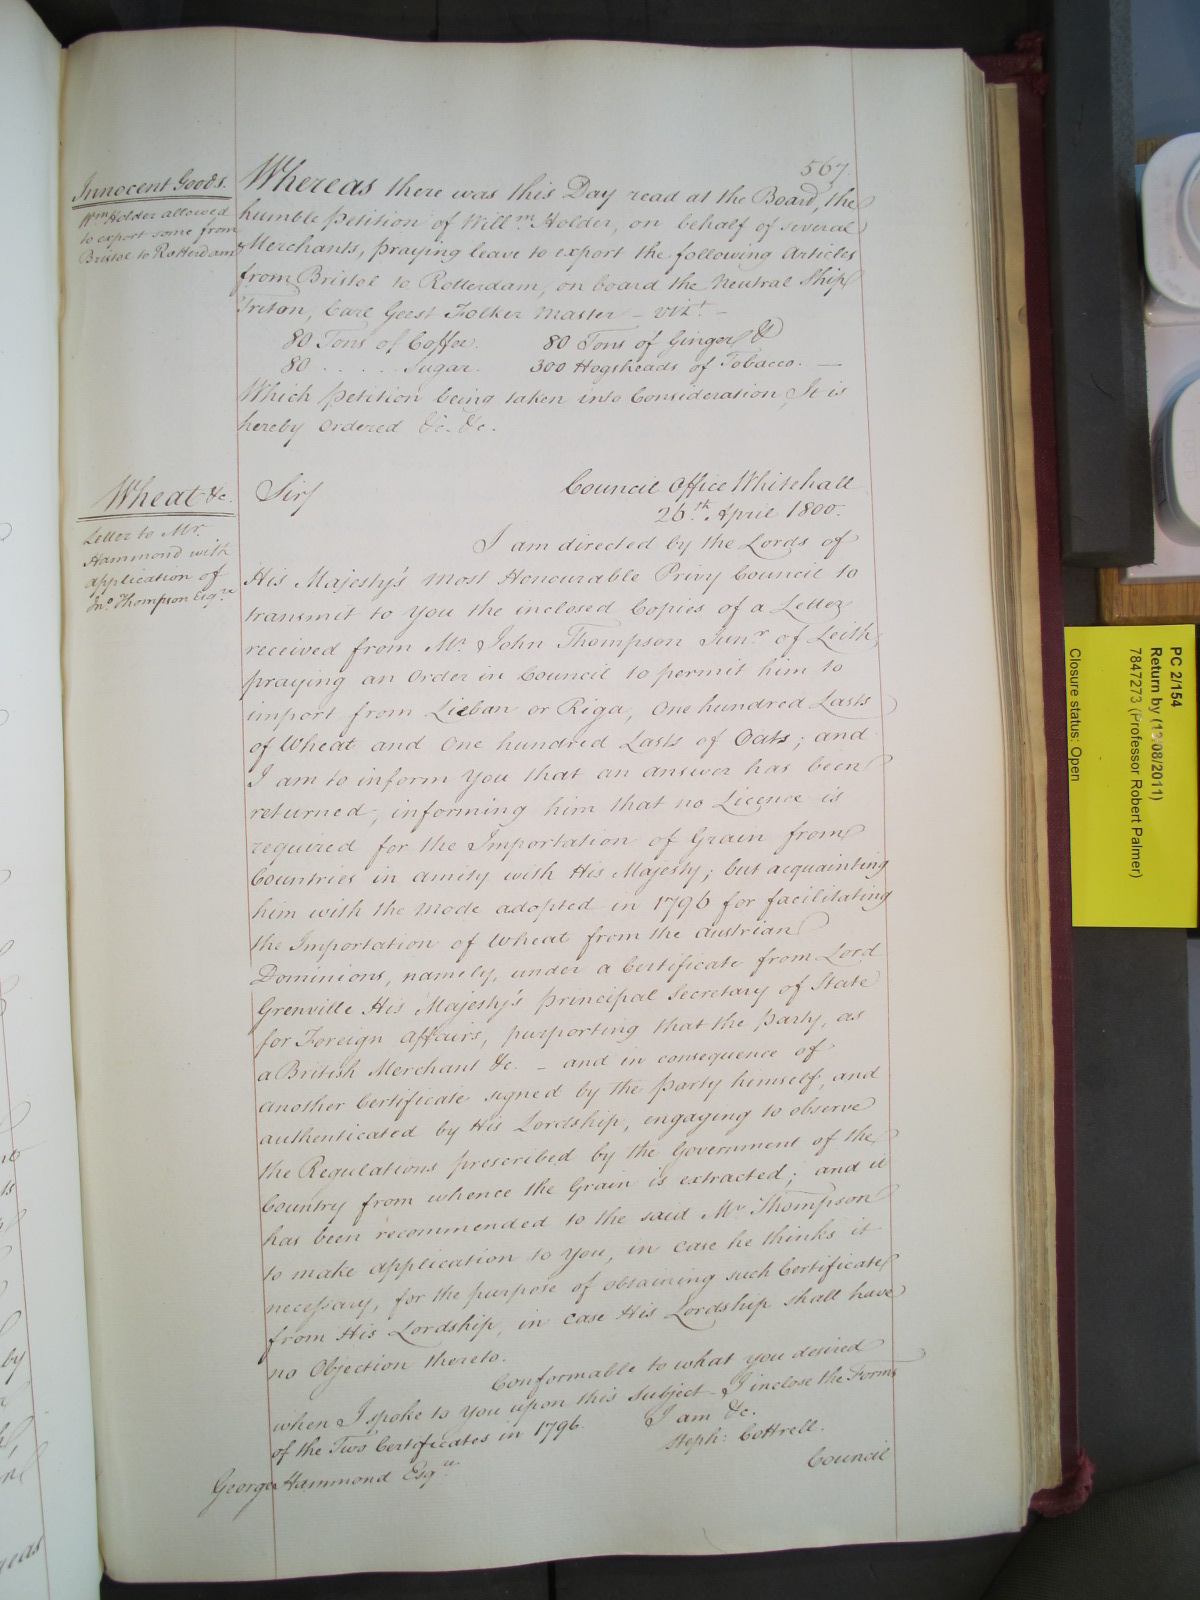 567.
Innocent Goods.
Wm Holder allowed
to export some from
Bristol to Rotterdam
Whereas there was this Day read at the Board, the
humble Petition of Willm Holder, on behalf of several
Merchants, praying leave to export the following Articles
from Bristol to Rotterdam, on board the Neutral Ship
Triton, Carl Geert Folker Master – vizt –
80 Tons of Coffee. 80 Tons of Ginger &
80 . . . . . Sugar. 300 Hogsheads of Tobacco. —
Which Petition being taken into Consideration, It is
hereby Ordered &c. &c.
Wheat &c.
Letter to Mr.
Hammond with
application of
Jno. Thompson Esqre
Sir, Council Office Whitehall
26th April 1800.
I am directed by the Lords of
His Majesty's most Honourable Privy Council to
transmit to you the inclosed Copies of a Letter
received from Mr. John Thompson Junr of Leith,
praying an Order in Council to permit him to
import from Lieban or Riga, One hundred Lasts
of Wheat and One hundred Lasts of Oats; and
I am to inform you that an answer has been
returned, informing him that no Licence is
required for the Importation of Grain from
Countries in amity with His Majesty; but acquainting
him with the Mode adopted in 1796 for facilitating
the Importation of Wheat from the Austrian
Dominions, namely, under a Certificate from Lord
Grenville His Majesty's principal Secretary of State
for Foreign Affairs, purporting that the Party, as
a British Merchant &c. – and in consequence of
another Certificate signed by the Party himself, and
authenticated by His Lordship, engaging to observe
the Regulations prescribed by the Government of the
Country from whence the Grain is extracted; and it
has been recommended to the said Mr Thompson
to make application to you, in case he thinks it
necessary, for the purpose of obtaining such Certificate
from His Lordship, in case His Lordship shall have
no Objection thereto.
Conformable to what you desired
when I spoke to you upon this Subject I inclose the Forms
of the Two Certificates in 1796. I am &c.
Steph: Cottrell.
George Hammond Esqre
Council
PC 2/154
Return by (12/08/2011)
7847273 (Professor Robert Palmer)
Closure status: Open